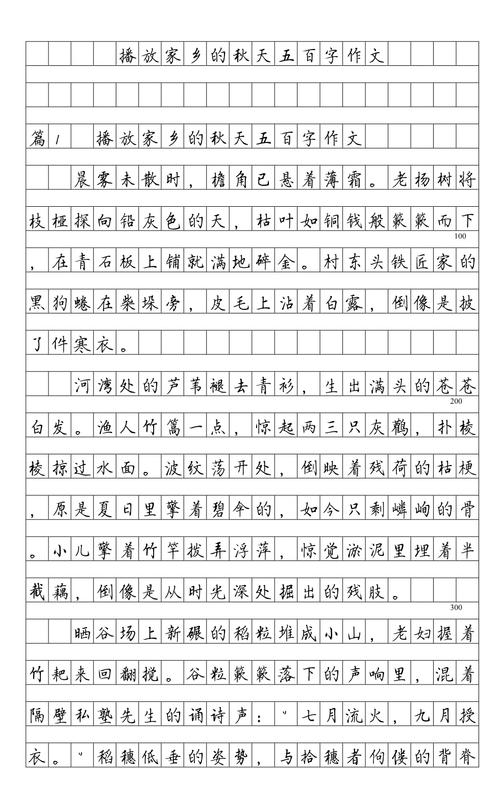 播放家乡的秋天五百字作文
篇1 播放家乡的秋天五百字作文
晨雾未散时，檐角已悬着薄霜。老杨树将
枝桠探向铅灰色的天，枯叶如铜钱般簌簌而下
100
，在青石板上铺就满地碎金。村东头铁匠家的
黑狗蜷在柴垛旁，皮毛上沾着白露，倒像是披
了件寒衣。
河湾处的芦苇褪去青衫，生出满头的苍苍
200
白发。渔人竹篙一点，惊起两三只灰鹳，扑棱
棱掠过水面。波纹荡开处，倒映着残荷的枯梗
，原是夏日里擎着碧伞的，如今只剩嶙峋的骨
。小儿擎着竹竿拨弄浮萍，惊觉淤泥里埋着半
截藕，倒像是从时光深处掘出的残肢。
300
晒谷场上新碾的稻粒堆成小山，老妇握着
竹耙来回翻搅。谷粒簌簌落下的声响里，混着
隔壁私塾先生的诵诗声："七月流火，九月授
衣。"稻穗低垂的姿势，与拾穗者佝偻的背脊